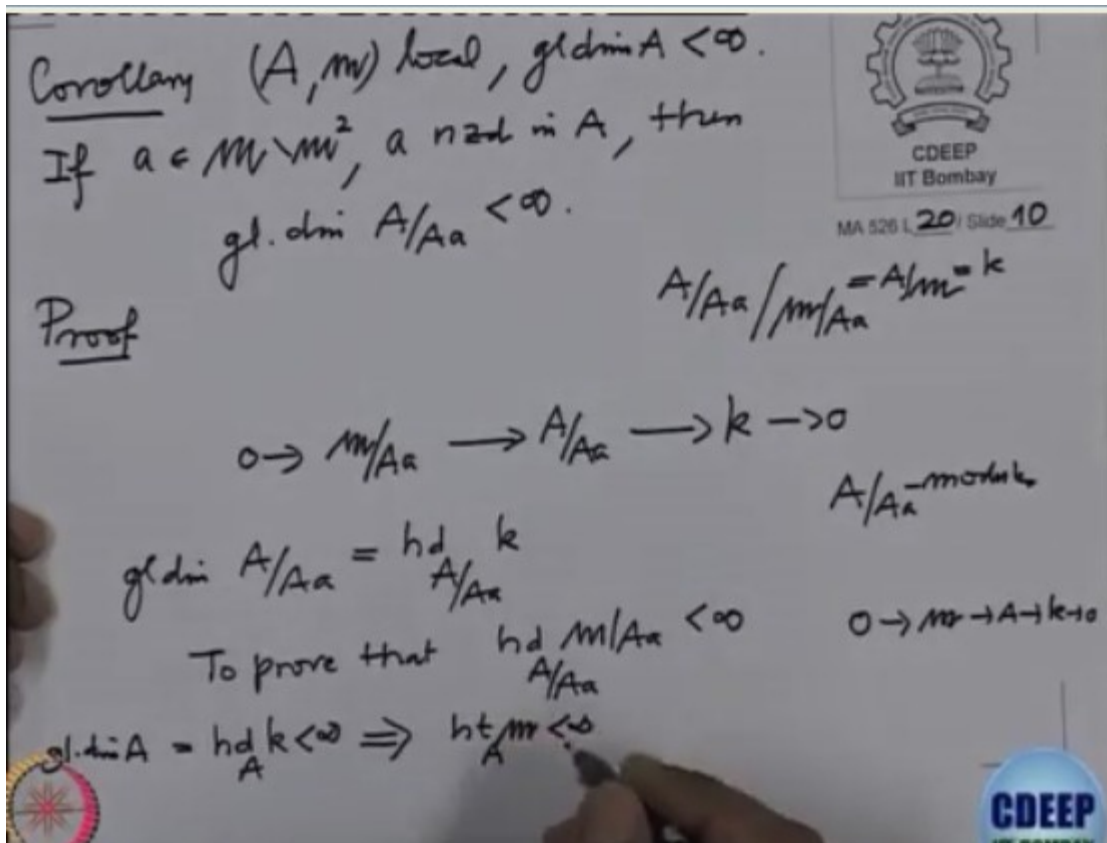 Corollary (A, m) local, gldim A < ∞.
If a ∈ m \ m², a nzd in A, then
gl. dim A/Aa < ∞.
CDEEP
IIT Bombay
MA 526 L 20 / Slide 10
Proof
A/Aa / m/Aa = A/m = k
0 → m/Aa → A/Aa → k → 0
A/Aa-module
gldim A/Aa = hd_{A/Aa} k
To prove that hd_{A/Aa} m/Aa < ∞
0 → m → A → k → 0
gl.dim A = hd_A k < ∞ ⇒ ht_A m < ∞
CDEEP
IIT BOMBAY